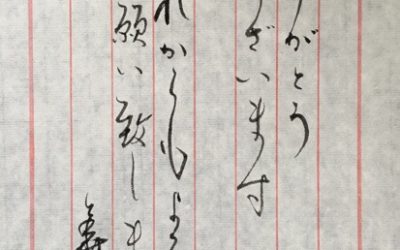 がとう
ざいます
れからもよ
願い致しま